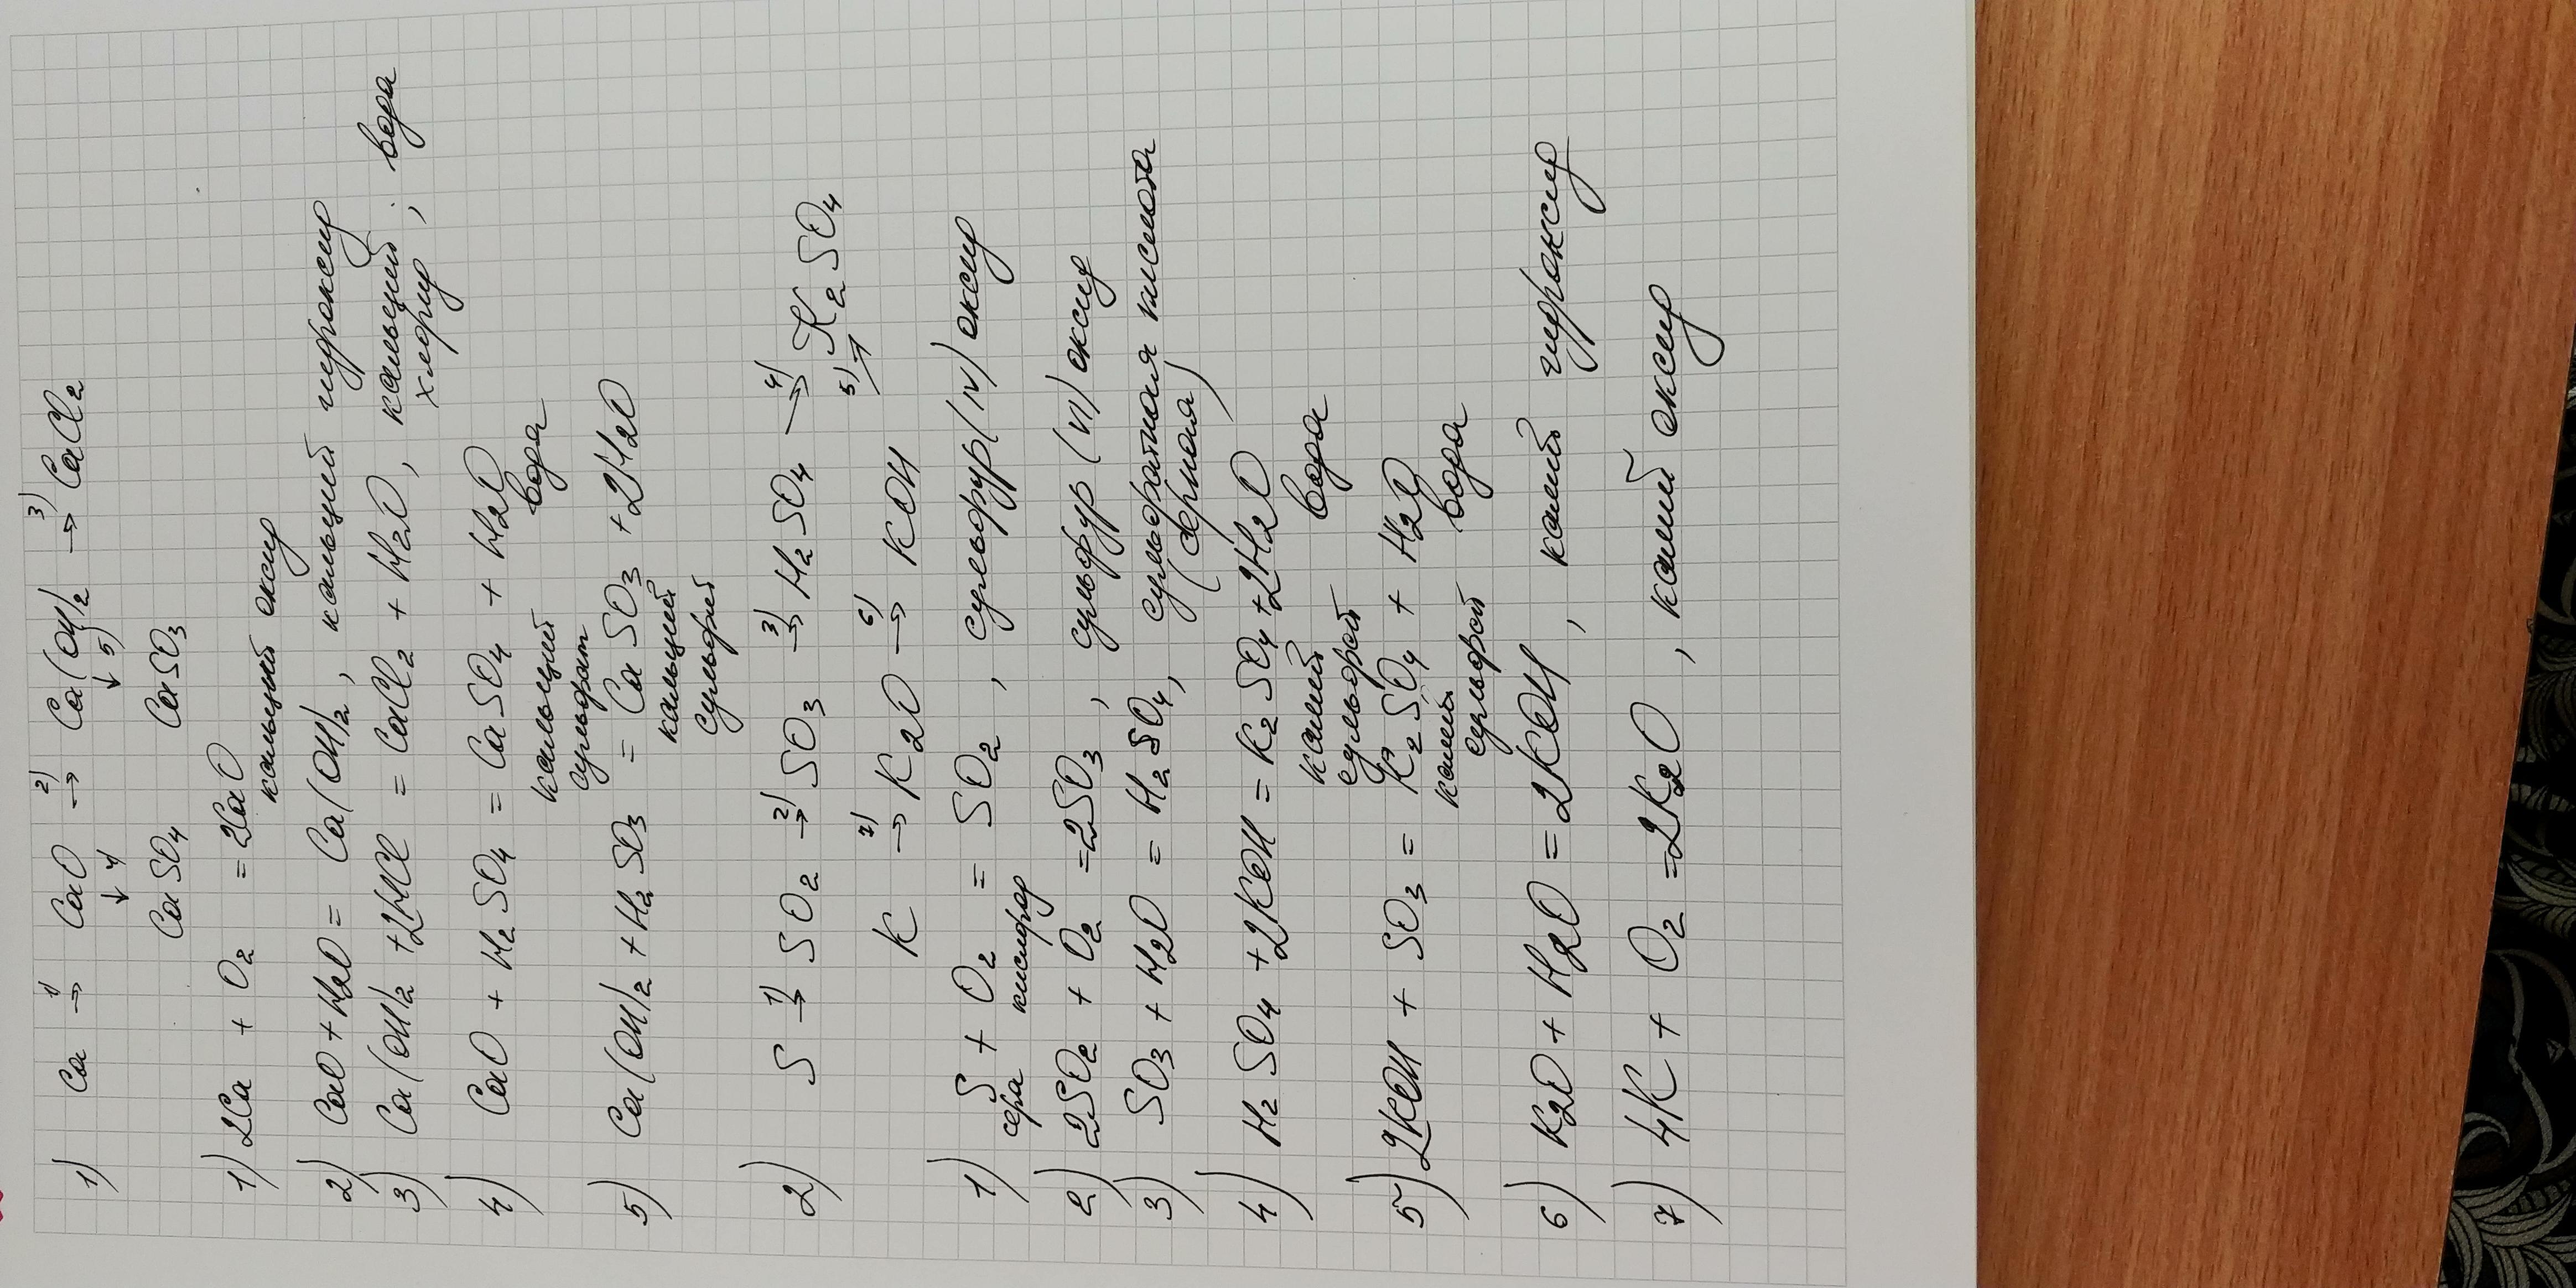 1) Ca 1)→ CaO 2)→ Ca(OH)2 3)→ CaCl2
↓4) ↓5)
CaSO4 CaSO3
1) 2Ca + O2 = 2CaO
кальций оксид
2) CaO + H2O = Ca(OH)2, кальций гидроксид
3) Ca(OH)2 + 2HCl = CaCl2 + H2O, кальций ; вода
хлорид
4) CaO + H2SO4 = CaSO4 + H2O
кальций вода
сульфат
5) Ca(OH)2 + H2SO3 = CaSO3 + 2H2O
кальций
сульфит
2) S 1)→ SO2 2)→ SO3 3)→ H2SO4 4)→ K2SO4
5)→
K 7)→ K2O 6)→ KOH
1) S + O2 = SO2, сульфур(IV) оксид
сера кислород
2) 2SO2 + O2 = 2SO3, сульфур (VI) оксид
3) SO3 + H2O = H2SO4, сульфатная кислота
(серная)
4) H2SO4 + 2KOH = K2SO4 + 2H2O
калий вода
сульфат
5) 2KOH + SO3 = K2SO4 + H2O
калий вода
сульфат
6) K2O + H2O = 2KOH, калий гидроксид
7) 4K + O2 = 2K2O, калий оксид